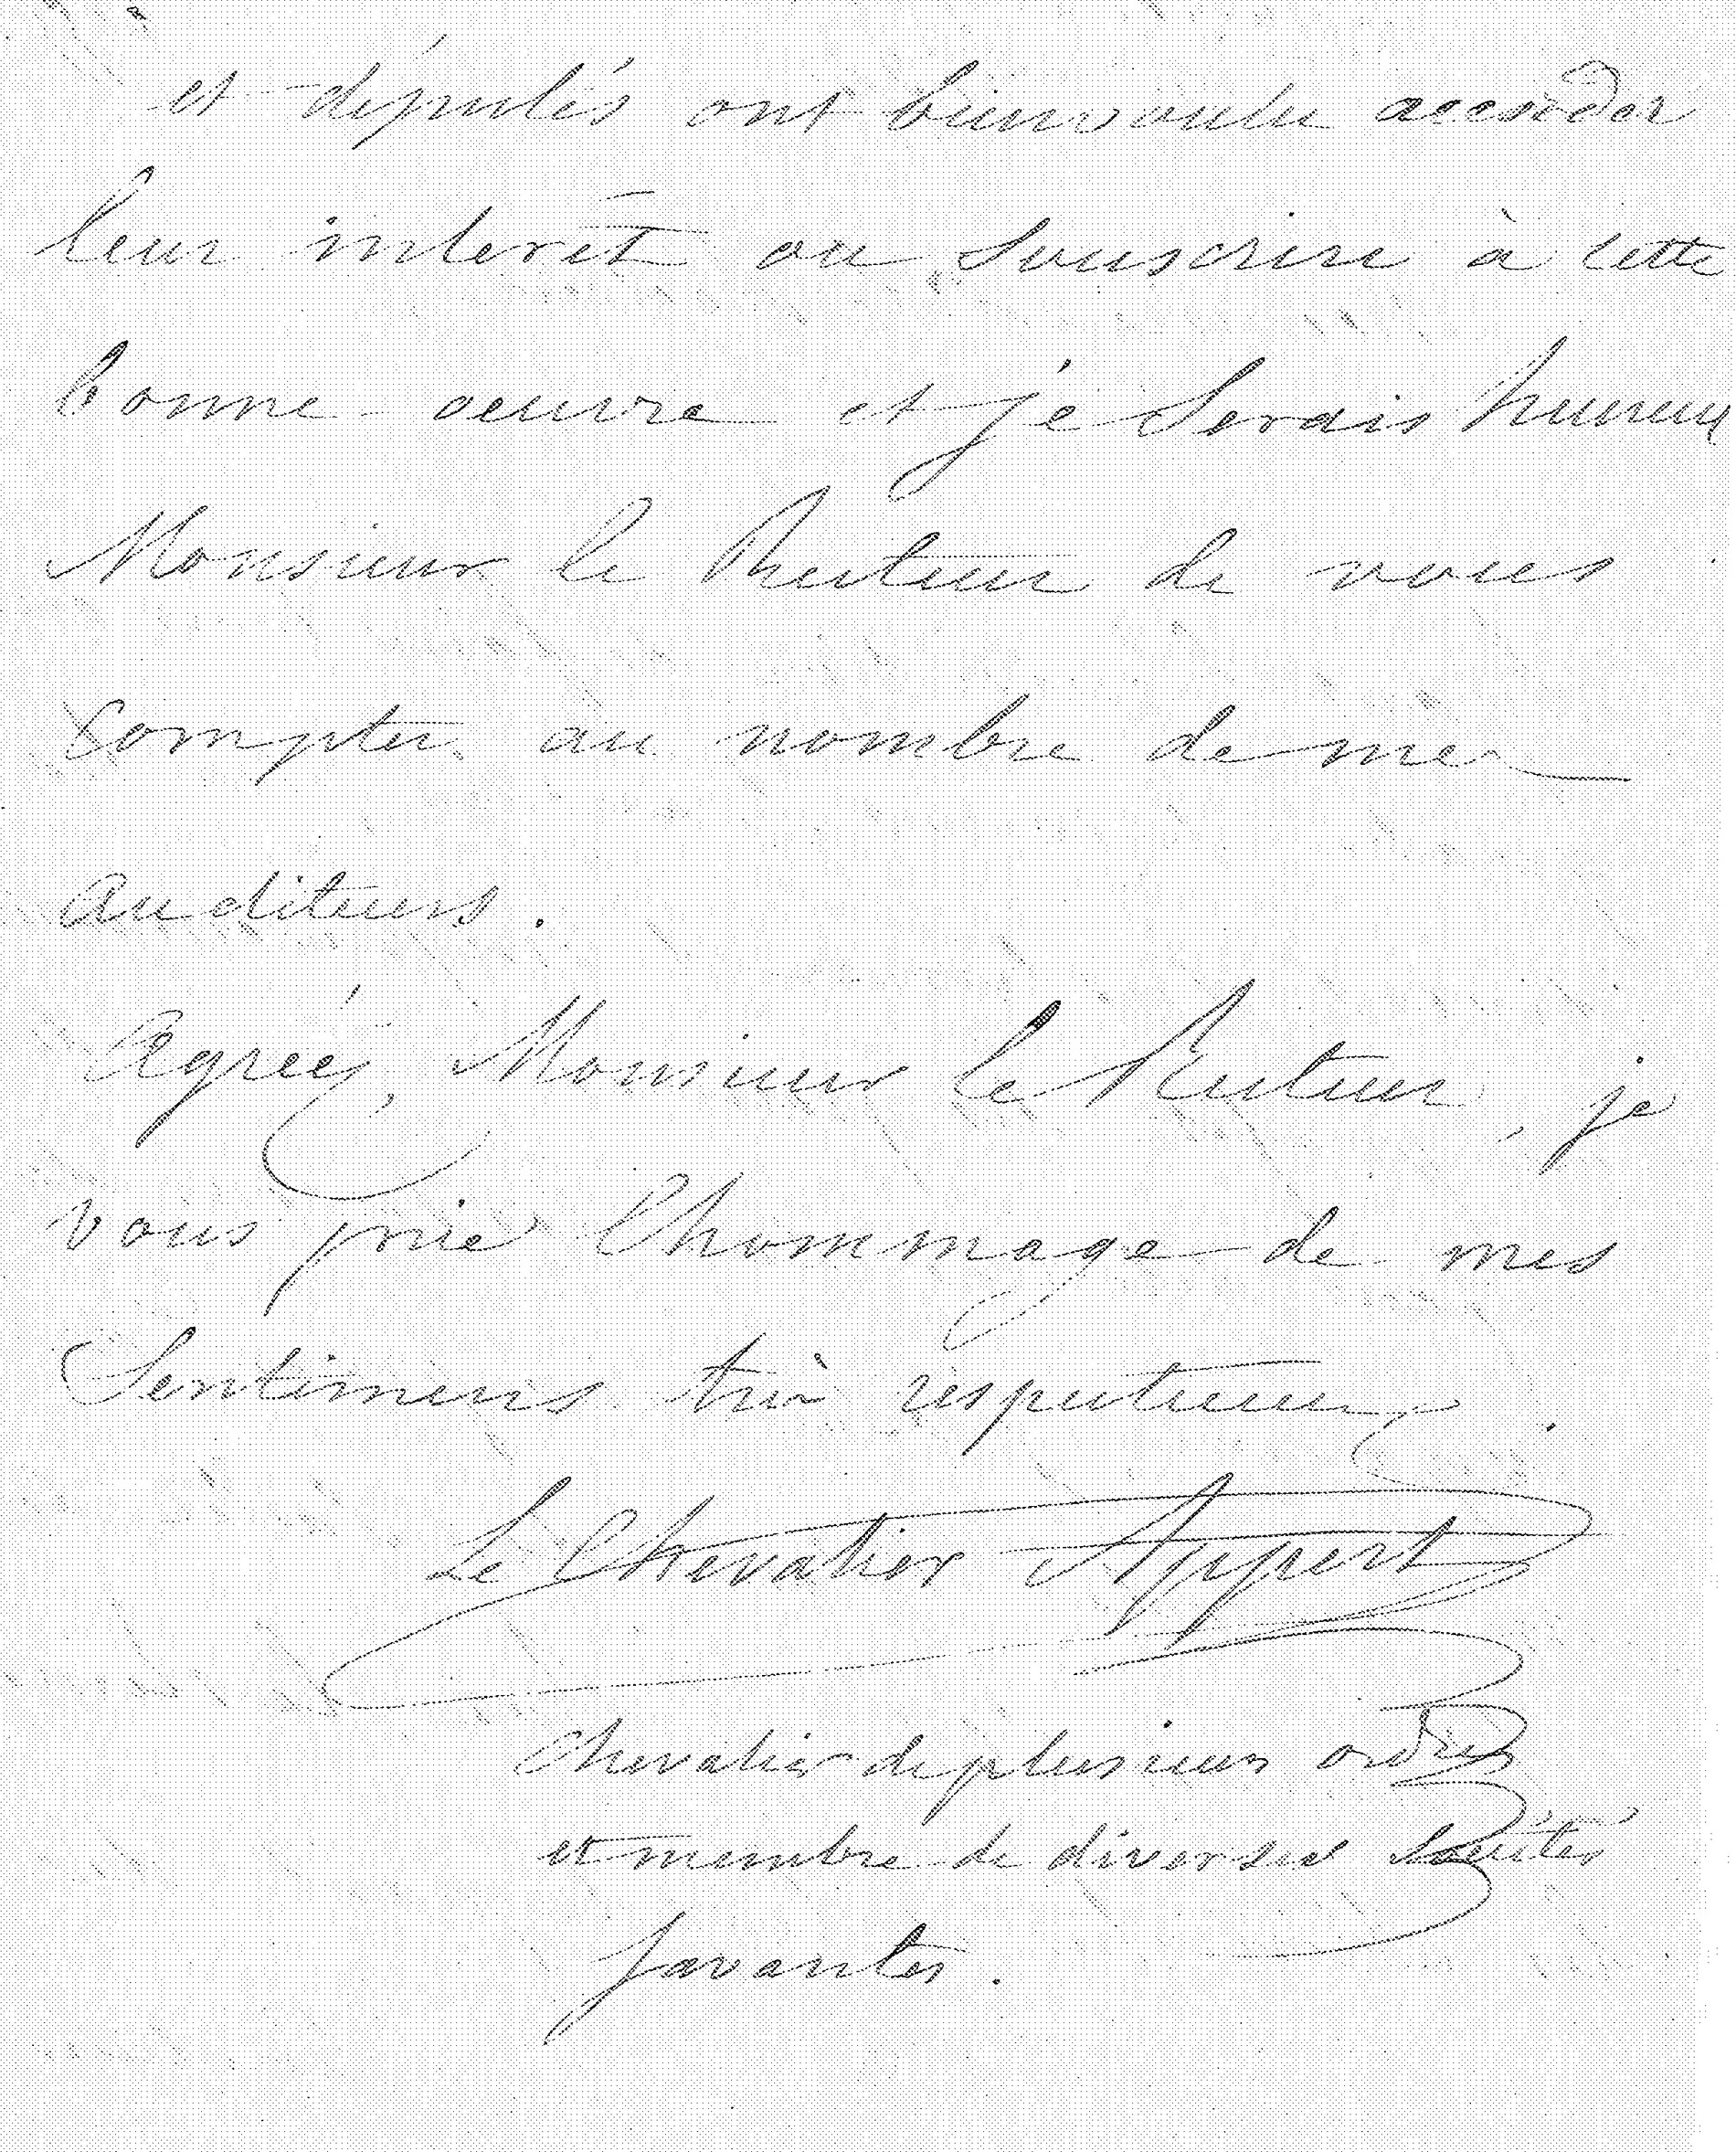 et députés ont bienvoulu accorder
leur interêt ou souscrire à cette
bonne oeuvre et je serais heureux
Monsieur le Recteur de vous
compter au nombre de mes
auditeurs.
Agréez, Monsieur le Recteur, je
vous prie l'hommage de mes
Sentimens très respectueux.
Le Chevalier Appert
Chevalier de plusieurs ordres
et membre de diverses Sociétés
savantes.